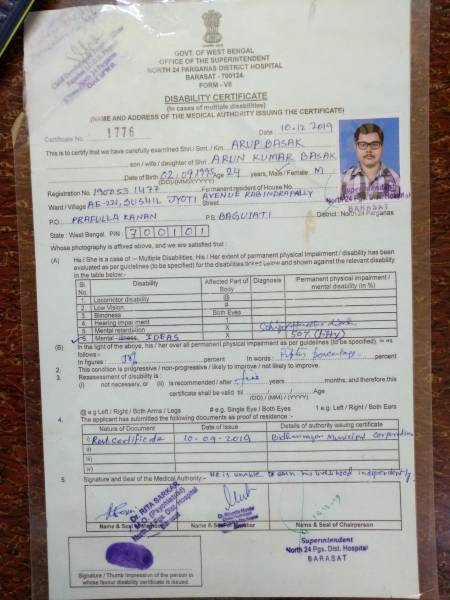 GOVT. OF WEST BENGAL
OFFICE OF THE SUPERINTENDENT
NORTH 24 PARGANAS DISTRICT HOSPITAL
BARASAT - 700124.
FORM - VII
DISABILITY CERTIFICATE
(In cases of multiple disabilities)
(NAME AND ADDRESS OF THE MEDICAL AUTHORITY ISSUING THE CERTIFICATE)
Certificate No. 1776 Date : 10-12-2019
This is to certify that we have carefully examined Shri./Smt./Km. ARUP BASAK
son / wife / daughter of Shri ARUN KUMAR BASAK
Date of Birth 02/09/1995 Age 24 years, Male / Female M
(DD)/(MM)/(YYYY)
Registration No. 190253 1477 Permanent resident of House No.
Ward / Village AE-221, SUSHIL JYOTI AVENUE RABINDRAPALLY Street
P.O. PRAFULLA KANAN P.S. BAGUIATI District : North 24 Parganas
State : West Bengal, PIN : 700101
Superintendent
BARASAT
Whose photography is affixed above, and we are satisfied that :
(A) He / She is a case of :- Multiple Disabilities, His / Her extent of permanent physical impairment / disability has been
evaluated as per guidelines (to be specified) for the disabilities ticked below and shown against the relevant disability
in the table below:-
Sl. No. Disability Affected Part of Body Diagnosis Permanent physical impairment / mental disability (in %)
1. Locomotor disability @
2. Low Vision #
3. Blindness Both Eyes
4. Hearing impairment X
5. Mental retardation X
6. Mental IDEAS X 50% (fifty)
(B) In the light of the above, his / her over all permanent physical impairment as per guidelines (to be specified), is as
follows:-
In figures : 50% percent In words : percent
2. This condition is progressive / non-progressive / likely to improve / not likely to improve.
3. Reassessment of disability is :
(i) not necessary, or (ii) is recommended / after years months, and therefore this
certificate shall be valid till (DD) / (MM) / (YYYY)
@ e.g Left / Right / Both Arms / Legs # e.g. Single Eye / Both Eyes e.g. Left / Right / Both Ears
4. The applicant has submitted the following documents as proof of residence:-
Nature of Document Date of Issue Details of authority issuing certificate
i) Rest. Certificate 10-09-2019 Bidhannagar Municipal Corporation
ii)
iii)
iv)
5. Signature and Seal of the Medical Authority:- He is unable to earn his livelihood independently.
Dr. RITA SARKAR
M.O. (Psychiatrist)
North 24 Pgs. Dist. Hospital
Barasat
Name & Seal of Member Name & Seal of Member Name & Seal of Chairperson
Superintendent
North 24 Pgs. Dist. Hospital
BARASAT
Signature / Thumb Impression of the person in
whose favour disability certificate is issued.